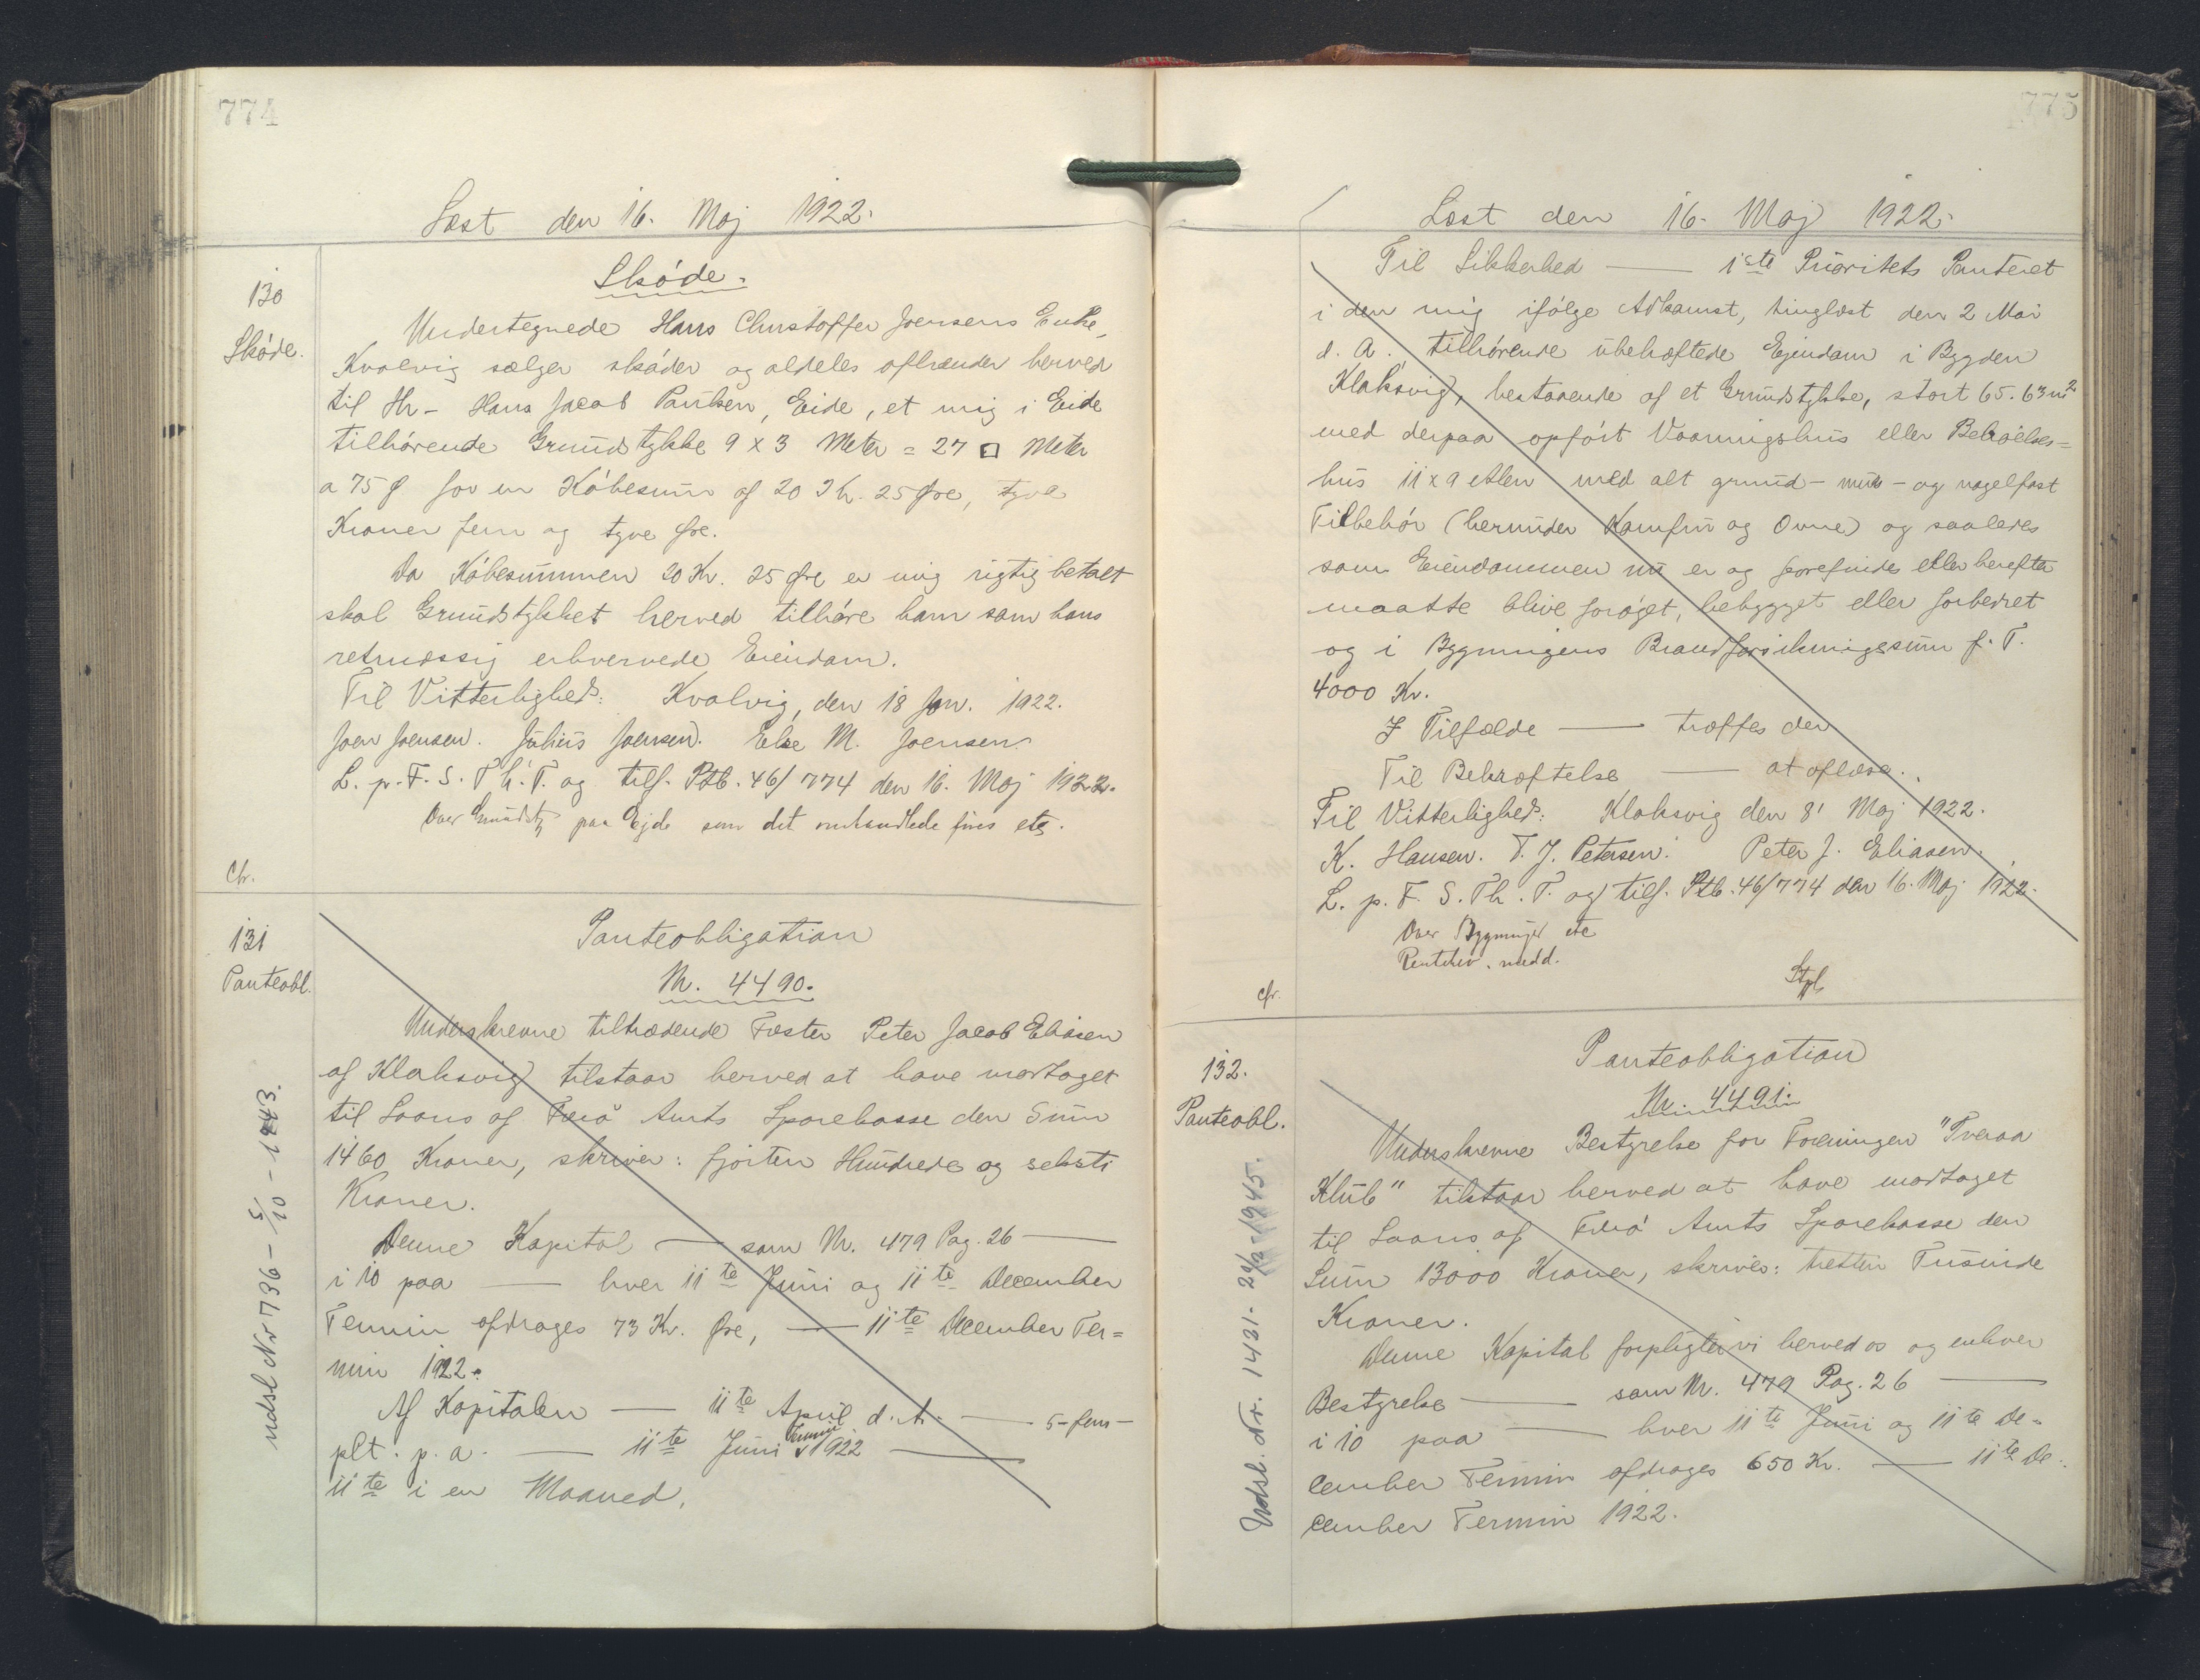 774
Læst den 16. Maj 1922.
130
Skøde.
Skøde.
Undertegnede Hans Christoffer Joensens Enke,
Kvalvig sælger skøder og aldeles afhænder herved
til Hr. Hans Jacob Paulsen, Eide, et mig i Eide
tilhørende Grundstykke 9 x 3 Meter = 27 □ Meter
a 75 Ø for en Købesum af 20 Kr. 25 Øre, tyve
Kroner fem og tyve Øre.
Da Købesummen 20 Kr. 25 Øre er mig rigtig betalt
skal Grundstykket herved tilhøre ham som hans
retmæssig erhvervede Eiendom.
Til Vitterlighed: Kvalvig, den 18 Jan. 1922.
Joen Joensen. Julius Joensen. Else M. Joensen.
L. p. F. S. Th. T. og tilf. Ptb. 46/774 den 16. Maj 1922.
Over Grundst. paa Ejde som det omhandlede fines etc.
Cfr.
131
Panteobl.
udsl Nr 736 - 5/10 - 1943.
Panteobligation
Nr. 4490.
Underskrevne tiltrædende Fæster Peter Jacob Eliasen
af Klaksvig tilstaar herved at have modtaget
til Laans af Færø Amts Sparekasse den Sum
1460 Kroner, skriver: fjorten Hundrede og seksti
Kroner.
Denne Kapital — som Nr. 479 Pag. 26 —
i 10 paa — hver 11te Juni og 11te December
Termin afdrages 73 Kr. Øre, — 11te December Ter=
min 1922.
Af Kapitalen — 11te April d. A. — 5-fem-
pCt. p. a. — 11te Juni Termin 1922 —
11te i en Maaned.
775
Læst den 16. Maj 1922.
Til Sikkerhed — 1ste Prioritets Panteret
i den mig ifølge Adkomst, tinglæst den 2 Mai
d. A. tilhørende ubehæftede Ejendom i Bygden
Klaksvig, bestaaende af et Grundstykke, stort 65.63 m2
med derpaa opført Vaaningshus eller Beboelses=
hus 11 x 9 Alen med alt grund- mur- og nagelfast
Tilbehør (herunder Komfur og Ovne) og saaledes
som Eiendommen nu er og forefindes eller herefter
maatte blive forøget, bebygget eller forbedret
og i Bygningens Brandforsikringssum p. T.
4000 Kr.
I Tilfælde — træffes den
Til Bekræftelse — at aflæse.
Til Vitterlighed: Klaksvig den 8' Maj 1922.
K. Hansen. T. J. Petersen. Peter J. Eliasen.
L. p. F. S. Th. T. og tilf. Ptb. 46/774 den 16. Maj 1922.
Over Bygninger etc
Rentebev. medd.
Stpl.
cfr.
132.
Panteobl.
Udsl. Nr. 1431. 24/2 1945.
Panteobligation
Nr. 4491.
Underskrevne Bestyrelse for Foreningen "Tveraa
Klub" tilstaar herved at have modtaget
til Laans af Færø Amts Sparekasse den
Sum 13000 Kroner, skriver: tretten Tusinde
Kroner.
Denne Kapital forpligter vi herved os og enhver
Bestyrelse — som Nr. 479 Pag. 26 —
i 10 paa — hver 11te Juni og 11te De=
cember Termin afdrages 650 Kr. — 11te De=
cember Termin 1922.